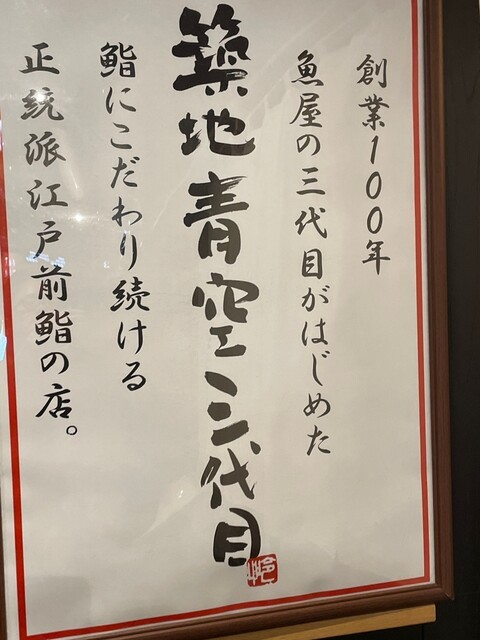 創業100年
魚屋の三代目がはじめた
築地青空三代目
鮨にこだわり続ける
正統派江戸前鮨の店。